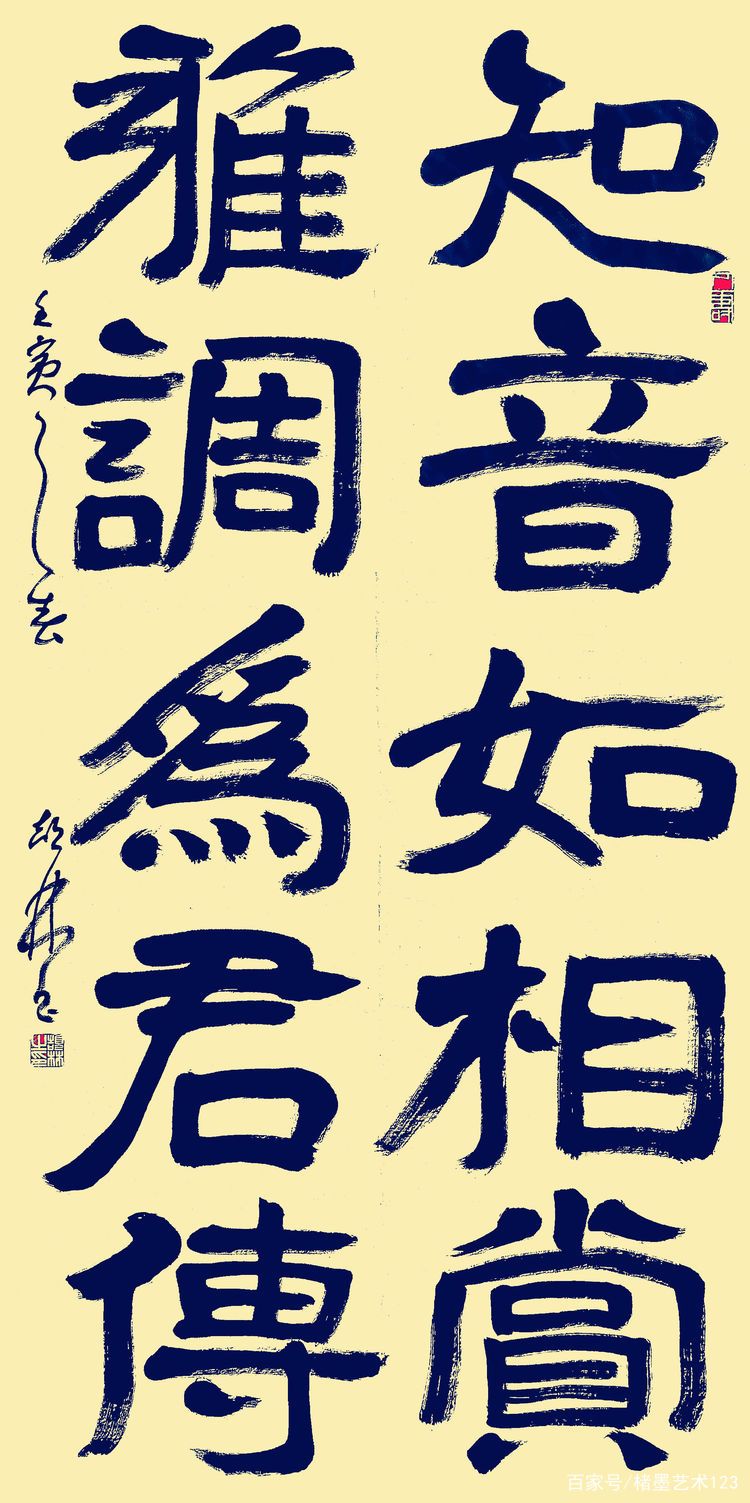 知音如相賞
雅調為君傳
壬寅之春
胡林书
百家号/楮墨艺术123